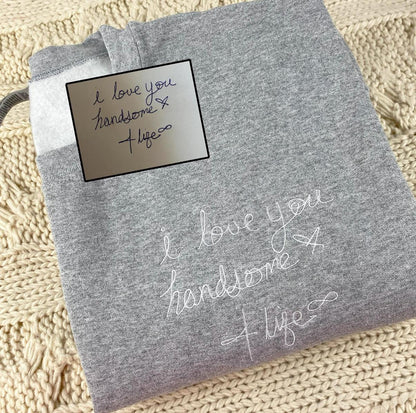 i love you
handsome x
+ life ∞
i love you
handsome x
+ life ∞